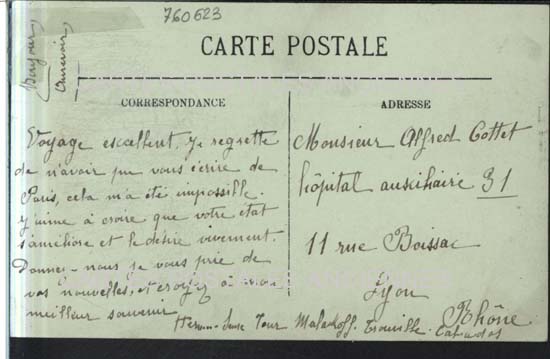 760623
Bonjour
CARTE POSTALE
CORRESPONDANCE
Voyage excellent. Je regrette
de n'avoir pu vous écrire de
Paris, cela m'a été impossible.
J'aime à croire que votre état
s'améliore et le désire vivement.
Donnez-nous je vous prie de
vos nouvelles, et croyez à mon
meilleur souvenir
Tour Malakoff. Trouville. Calvados
ADRESSE
Monsieur Alfred Cottet
hôpital auxiliaire 31
11 rue Boissac
Lyon
Rhône